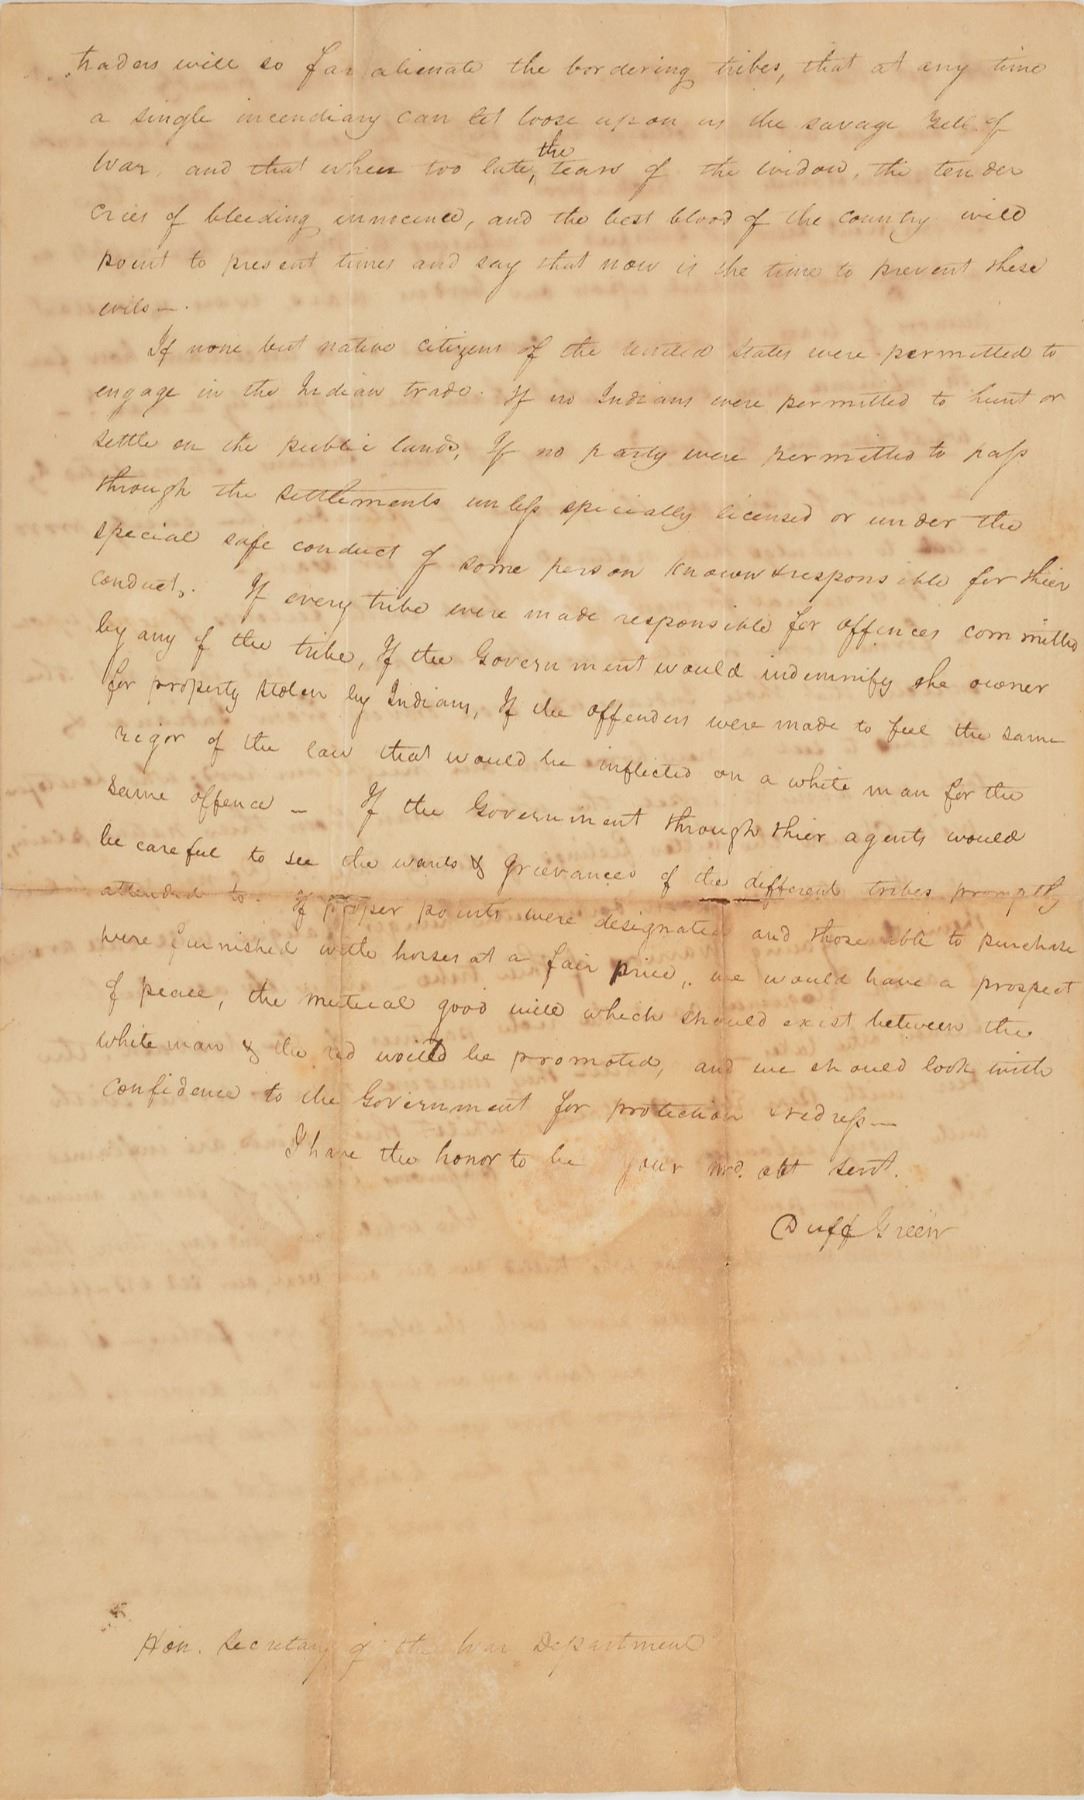 traders will so far alienate the bordering tribes, that at any time
a single incendiary can let loose upon us the savage yell of
War, and that when too late, the tears of the widow, the tender
cries of bleeding innocence, and the best blood of the country will
point to present times and say that now is the time to prevent these
evils—.
If none but native citizens of the United States were permitted to
engage in the Indian trade. If no Indians were permitted to hunt or
settle on the public lands, If no party were permitted to pass
through the settlements unless specially licensed or under the
special safe conduct of some person known & responsible for thier
conduct. If every tribe were made responsible for offences committed
by any of the tribe, If the Government would indemnify the owner
for property stolen by Indians, If the offenders were made to feel the same
rigor of the law that would be inflicted on a white man for the
same offence — If the Government through thier agents would
be careful to see the wants & grievances of the different tribes promptly
attended to. If proper points were designated and those able to purchase
were furnished with horses at a fair price, we would have a prospect
of peace, the mutual good will which should exist between the
white man & the red would be promoted, and we should look with
confidence to the Government for protection & redress—
I have the honor to be your mo. obt Servt.
Duff Green
Hon. Secretary of the War Department